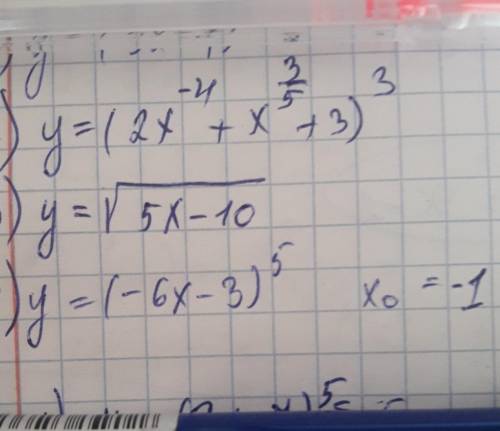 ) y = (2x⁻⁴ + x^(3/5) + 3)³
) y = √(5x - 10)
) y = (-6x - 3)⁵ x₀ = -1